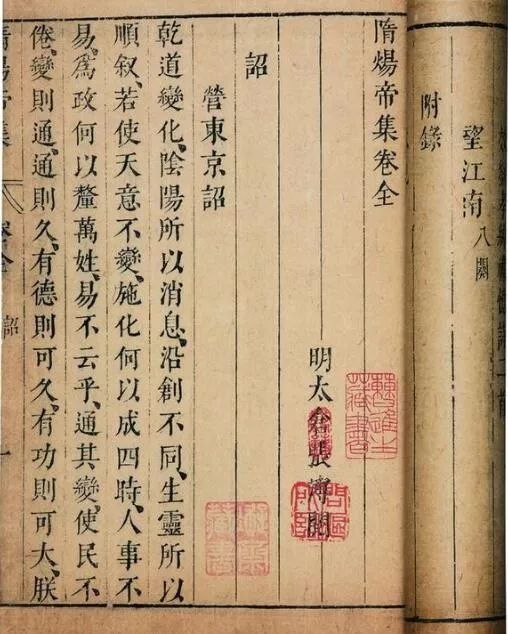 附錄
望江南八闋
隋煬帝集卷全
明太倉張溥閱
詔
營東京詔
乾道變化、陰陽所以消息、沿創不同、生靈所以
順叙、若使天意不變、施化何以成四時、人事不
易、爲政何以釐萬姓、易不云乎、通其變、使民不
倦、變則通、通則久、有德則可久、有功則可大、朕
隋煬帝集 卷全 詔 一